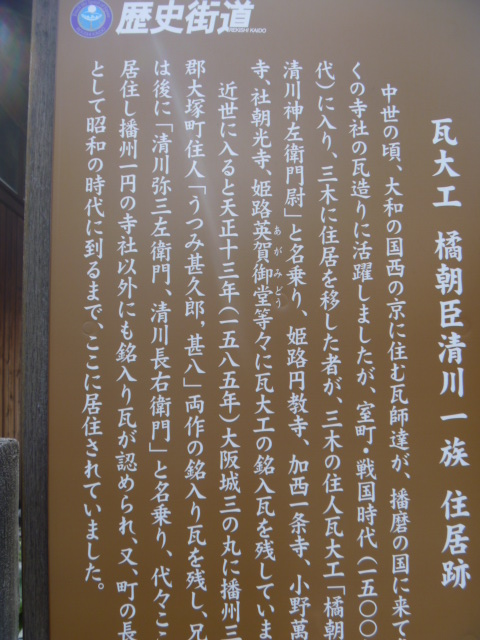 歴史街道
REKISHI KAIDO
瓦大工 橘朝臣清川一族 住居跡
中世の頃、大和の国西の京に住む瓦師達が、播磨の国に来て
くの寺社の瓦造りに活躍しましたが、室町・戦国時代(一五〇〇
代)に入り、三木に住居を移した者が、三木の住人瓦大工「橘朝
清川神左衛門尉」と名乗り、姫路円教寺、加西一条寺、小野萬
寺、社朝光寺、姫路英賀御堂等々に瓦大工の銘入瓦を残していま
あがみどう
近世に入ると天正十三年(一五八五年)大阪城三の丸に播州三
郡大塚町住人「うつみ甚久郎,甚八」両作の銘入り瓦を残し、兄
は後に「清川弥三左衛門、清川長右衛門」と名乗り、代々ここ
居住し播州一円の寺社以外にも銘入り瓦が認められ、又、町の長
として昭和の時代に到るまで、ここに居住されていました。